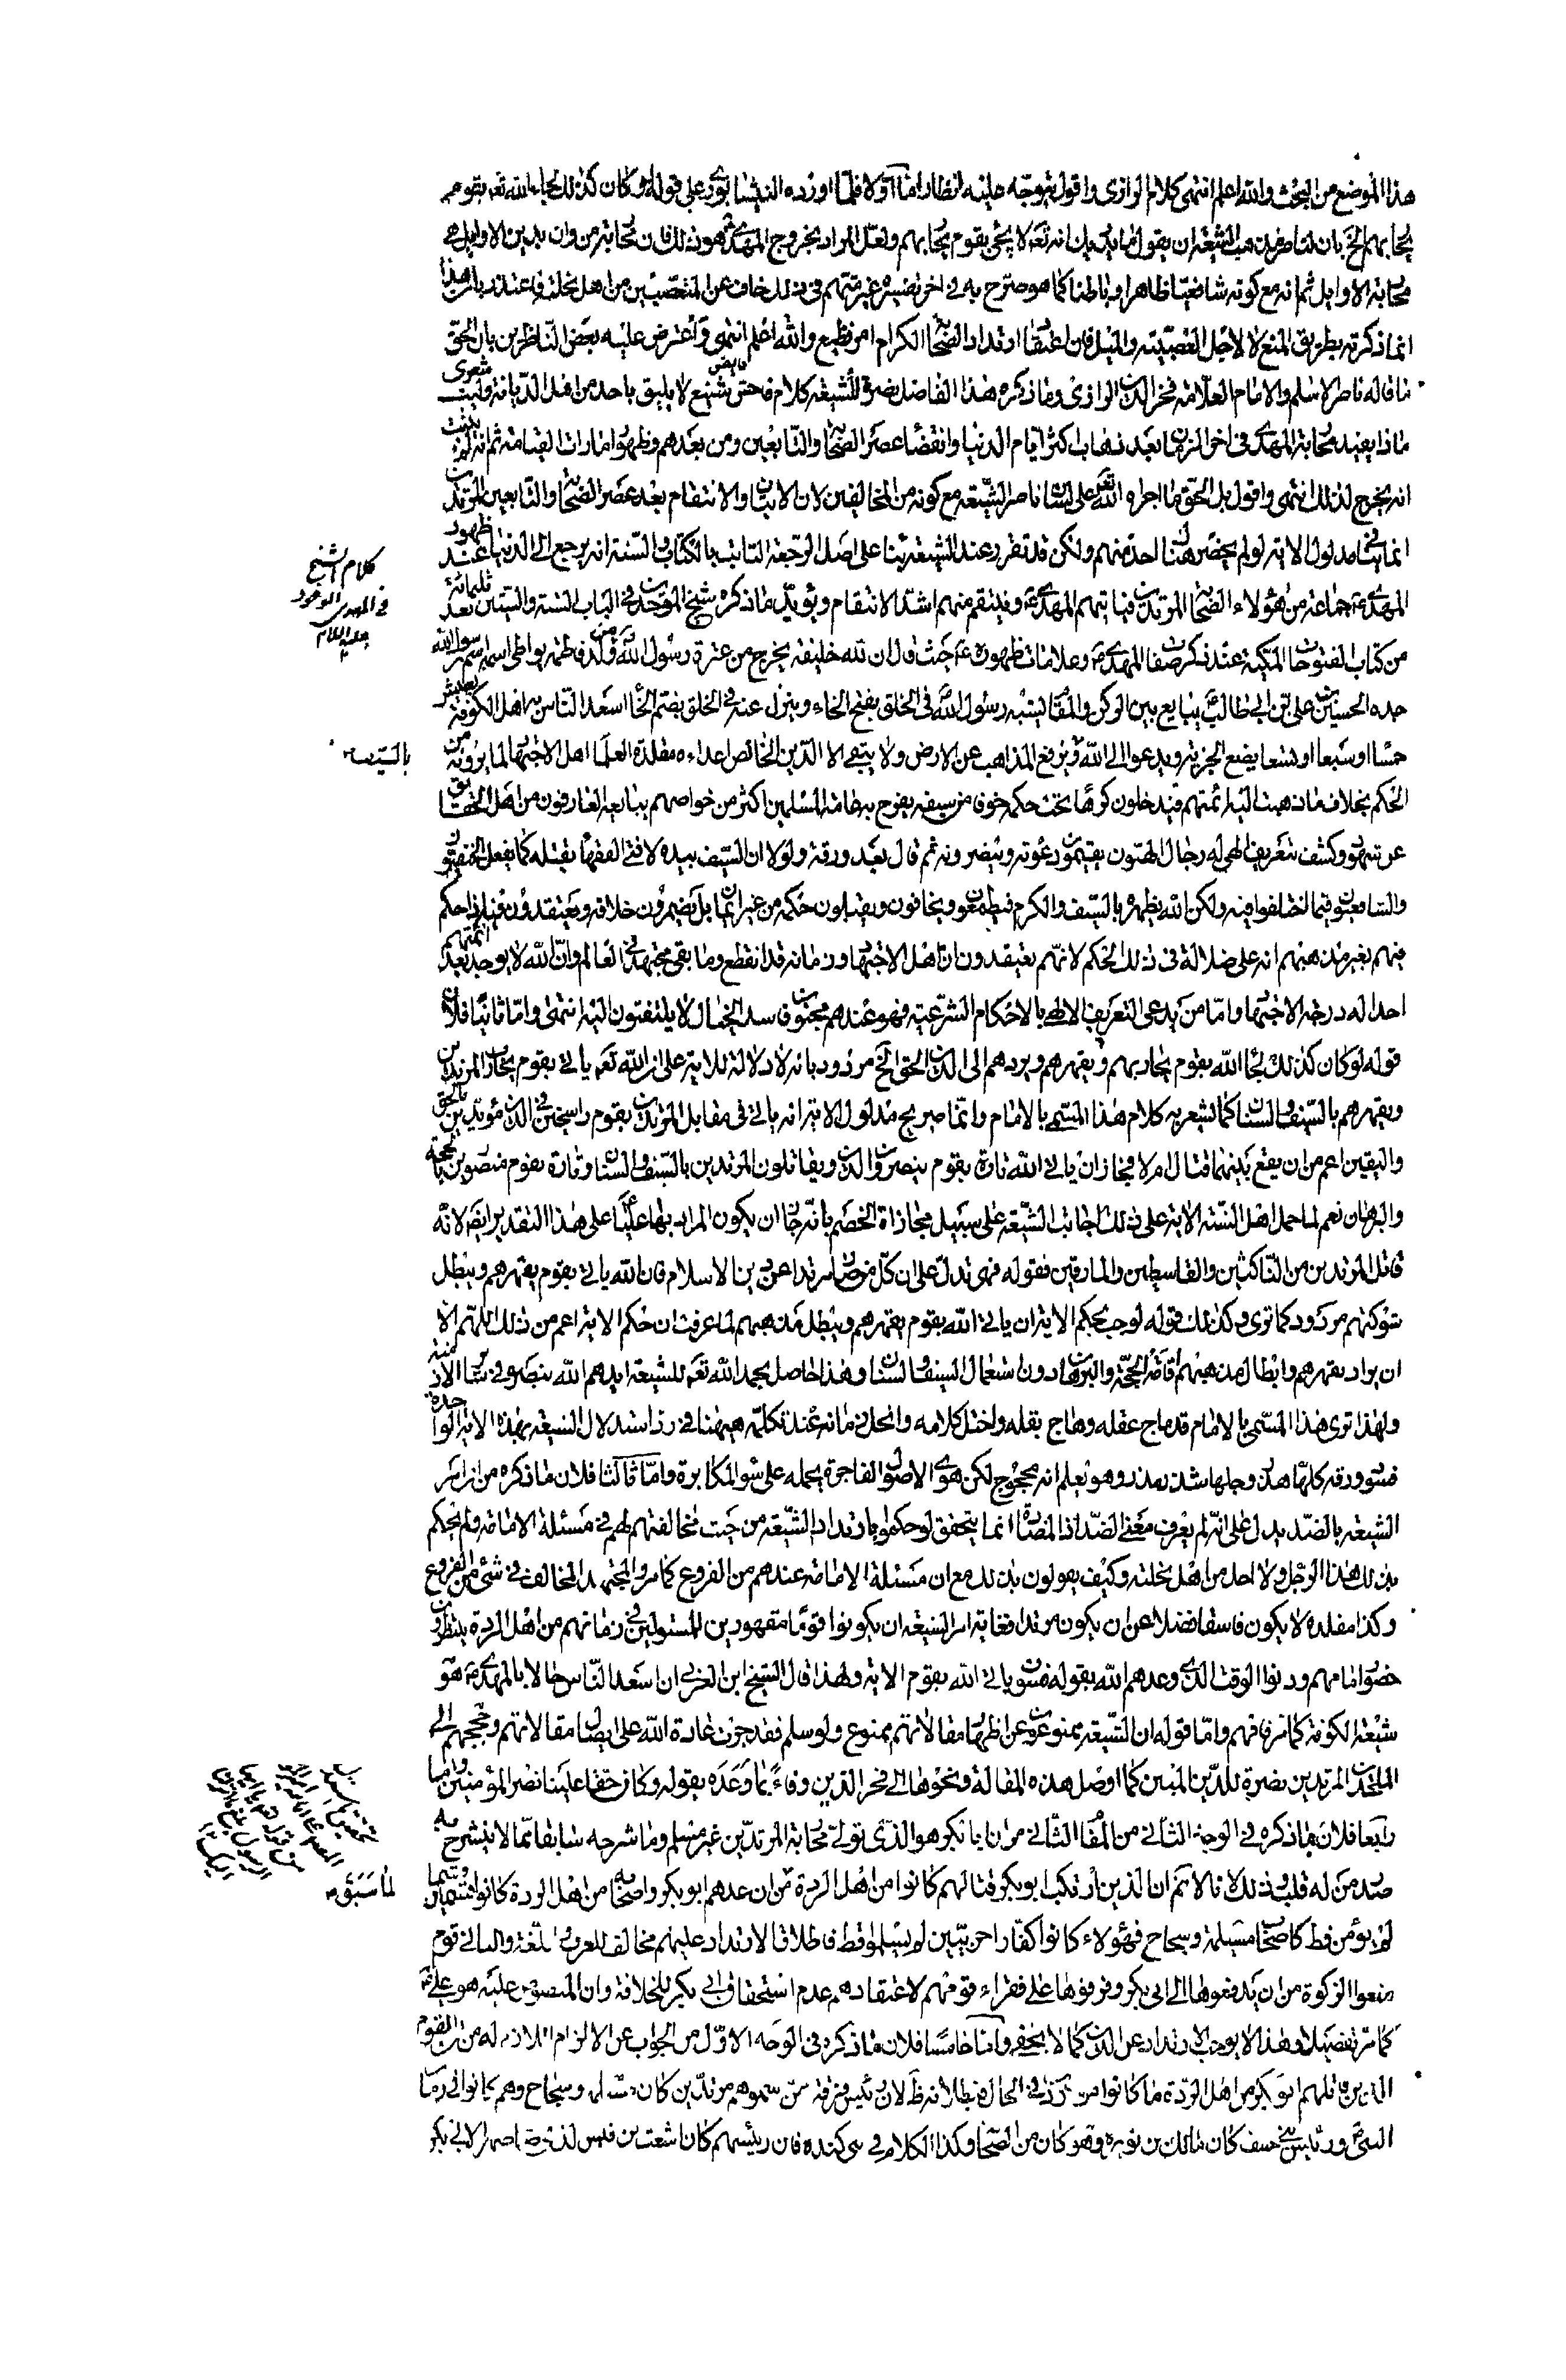 هذا الموضع من البحث والله اعلم انتهى كلام الرازى واقول يتوجه عليه انظار اما اولا فلما اورده النيشابورى على قوله لو كان كذلك لجاء الله تعه بقوم
يحاربهم الخ بان لناصر مذهب الشيعة ان يقول ما يدريك انه تعه لا يجئ بقوم يحاربهم ولعل المراد بخروج المهدى هو ذلك فان محاربة من دان بدين الاوايل هى
محاربة الاوايل ثم انه مع كونه شافعيا ظاهرا وباطنا كما هو صرح به فى اخر تفسيره غير متهم فى ذلك خاف عن المتعصبين من اهل نحلته فاعتذر بان هذا
انما ذكرته بطريق المنع لا لاجل العصبية والميل فان اعتقاد ارتداد الصحابة الكرام امر فظيع والله اعلم انتهى واعترض عليه بعض الناظرين بان الحق
ما قاله ناصر الاسلام والامام العلامة فخر الدين الرازى وما ذكره هذا الفاضل نصرة للشيعة كلام فاحش شنيع لا يليق باحد من اهل الديانة وليت شعرى
ماذا يفيد محاربة المهدى فى اخر الزمان بعد ذهاب اكثر ايام الدنيا وانقضاء عصر الصحابة والتابعين ومن بعدهم وظهور امارات القيامة ثم انه لم يثبت
انه يخرج لذلك انتهى واقول بل الحق ما اجراه الله تعه على لسان ناصر الشيعة مع كونه من المخالفين لان الاتيان والانتقام بعد عصر الصحابة والتابعين المرتدين
انما ينافى مدلول الاية لو لم يحضر هناك احد منهم ولكن قد تقرر عند الشيعة بناء على اصل الرجعة الثابت بالكتاب والسنة انه يرجع الى الدنيا عند ظهور
المهدى جماعة من هؤلاء الصحابة المرتدين فياتيهم المهدى وينتقم منهم اشد الانتقام ويؤيد ما ذكره شيخ الموحدين فى الباب الستة والستين بعد ثلثمائة
من كتاب الفتوحات المكية عند ذكر صفات المهدى وعلامات ظهوره حيث قال ان لله خليفة يخرج من عترة رسول الله من ولد فاطمة يواطى اسمه اسم رسول الله
جده الحسين بن على بن ابى طالب يبايع بين الركن والمقام يشبه رسول الله فى الخلق بفتح الخاء وينزل عنه فى الخلق بضم الخاء اسعد الناس به اهل الكوفة يعيش
خمسا او سبعا او تسعا يضع الجزية ويدعو الى الله ويرفع المذاهب عن الارض ولا يبقى الا الدين الخالص اعداءه مقلدة العلماء اهل الاجتهاد لما يرونه من
الحكم بخلاف ما ذهبت اليه ائمتهم فيدخلون كرها تحت حكمه خوفا من سيفه يفرح به عامة المسلمين اكثر من خواصهم يبايعه العارفون من اهل الحقايق
عن شهود وكشف بتعريف الهى له رجال الهيون يقيمون دعوته وينصرونه ثم قال بعد ورقة ولولا ان السيف بيده لافتى الفقهاء بقتله كما يفعل الحنفيون
والشافعيون فيما اختلفوا فيه ولكن الله يظهره بالسيف والكرم فيطمعون ويخافون ويقبلون حكمه من غير ايمان بل يضمرون خلافه ويعتقدون فيه اذا حكم
فيهم بغير مذهبهم انه على ضلالة فى ذلك الحكم لانهم يعتقدون ان اهل الاجتهاد وزمانه قد انقطع وما بقى مجتهد فى العالم وان الله لا يوجد بعد ائمتهم
احدا له درجة الاجتهاد واما من يدعى التعريف الالهى بالاحكام الشرعية فهو عندهم مجنون فاسد الخيال لا يلتفتون اليه انتهى واما ثانيا فلان
قوله لو كان كذلك لجاء الله بقوم يحاربهم ويقهرهم ويردهم الى الدين الحق الخ مردود بانه لا دلالة للاية على ان الله تعه ياتى بقوم يحارب المرتدين
ويقهرهم بالسيف والسنان كما يشعر به كلام هذا المسمى بالامام وانما صريح مدلول الاية انه ياتى فى مقابل المرتدين بقوم راسخين فى الدين مؤيدين بالحق
واليقين اعم من ان يقع بينهما قتال ام لا فجاز ان ياتى الله تارة بقوم ينصرون الدين ويقاتلون المرتدين بالسيف والسنان وتارة بقوم منصورين بالحجة
والبرهان نعم لما حمل اهل السنة الاية على ذلك اجاب الشيعة على سبيل مجازاة الخصم بانه جاز ان يكون المراد بها عليا على هذا التقدير ايضا لانه
قاتل المرتدين من الناكثين والقاسطين والمارقين فقوله فهى تدل على ان كل من صار مرتدا عن دين الاسلام فان الله ياتى بقوم يقهرهم ويبطل
شوكتهم مردود كما ترى وكذلك قوله لوجب بحكم الاية ان ياتى الله بقوم يقهرهم ويبطل مذهبهم لما عرفت ان حكم الاية اعم من ذلك اللهم الا
ان يراد بقهرهم وابطال مذهبهم اقامة الحجة والبرهان دون استعمال السيف والسنان وهذا حاصل بحمد الله تعه للشيعة ايدهم الله بنصره فى ساير الازمنة
ولهذا ترى هذا المسمى بالامام قد ماج عقله وهاج بقله واختل كلامه وانحل زمامه عند تكلمه ههنا فى رد استدلال الشيعة بهذه الاية الواحدة
فسود ورقة كلها هذر وجلها شذر مذر وهو يعلم انه محجوج لكن هوى الاصول الفاجرة يحمله على سوء المكابرة واما ثالثا فلان ما ذكره من ان امر
الشيعة بالضد يدل على انه لم يعرف معنى الضد اذ المضادة انما يتحقق لو حكموا بارتداد الشيعة من حيث مخالفتهم لهم فى مسئلة الامامة ولم يحكم
بذلك هذا الرجل ولا احد من اهل نحلته وكيف يقولون بذلك مع ان مسئلة الامامة عندهم من الفروع كما مر والمجتهد المخالف فى شئ من الفروع
وكذا مقلده لا يكون فاسقا فضلا عن ان يكون مرتدا فغاية امر الشيعة ان يكونوا قوما مقهورين للمستولين فى زمانهم من اهل الردة ينتظرون
حضور امامهم ودنو الوقت الذى وعدهم الله بقوله فسوف ياتى الله بقوم الاية ولهذا قال الشيخ ابن العربى ان اسعد الناس حالا بالمهدى هو
شيعة الكوفة كما مر فافهم واما قوله ان الشيعة ممنوعون عن اظهار مقالاتهم ممنوع ولو سلم فقد جرت عادة الله على ايصال مقالاتهم وحججهم الى
الملحدين المرتدين نصرة للدين المبين كما اوصل هذه المقالة ونحوها الى فخر الدين وفاء بما وعده بقوله وكان حقا علينا نصر المؤمنين واما
رابعا فلان ما ذكره فى الوجه الثانى من المقام الثانى من ان ابا بكر هو الذى تولى محاربة المرتدين غير مسلم وما شرحه سابقا مما لا ينشرح به
صدر من له قلب وذلك لانا لا نسلم ان الذين ارتكب ابو بكر قتالهم كانوا من اهل الردة من ان عدهم ابو بكر واصحابه من اهل الردة كانوا قسمين قسما
لم يؤمن قط كاصحاب مسيلمة وسجاح فهؤلاء كانوا كفارا حربيين لم يسلموا قط فاطلاق الارتداد عليهم مخالف للعرف واللغة والثانى قوم
منعوا الزكوة من ان يدفعوها الى ابى بكر وفرقوها على فقراء قومهم لاعتقادهم عدم استحقاق ابى بكر للخلافة وان المنصوص عليه هو على
كما مر تفصيله وهذا لا يوجب الارتداد عن الدين كما لا يخفى واما خامسا فلان ما ذكره فى الوجه الاول من الجواب عن الالزام اللازم له من ان القوم
الذين قاتلهم ابو بكر من اهل الردة ما كانوا فى الحال فبطلانه ظ لان رئيس فرقة ممن سموهم مرتدين كان مسيلمة وسجاح وهم كانوا فى زمان
النبى ورئيس بنى حنيف كان مالك بن نويره وهو كان من الصحابة وكذا الكلام فى بنى كنده فان رئيسهم كان اشعث بن قيس
كلام الشيخ
فى المهدى الموعود
عليه السلام
بالسيف
لما سبق